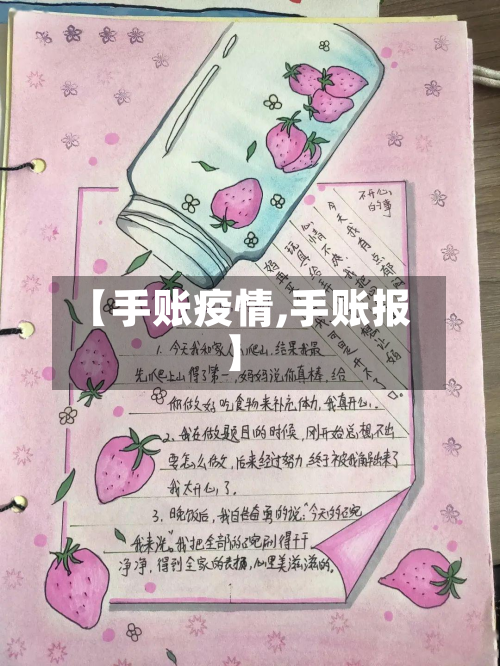 不开心
的事
今天我有点郁
心情不
玩具给
妈
【手账疫情,手账报
】
1. 今天我和家人爬山,结果我最
先爬上山得了第一,妈妈说你真棒,给
你做好吃食物来补充体力,我真开心。
2、我在做题目的时候,刚开始总想不出
要怎么做,后来经过努力终于被我搞出来了
我太开心了。
3、晚饭后,我自告奋勇的说:"今天的碗
我来洗"。我把全部的碗刷得干干
净净,得到全家的表扬,心里美滋滋的。